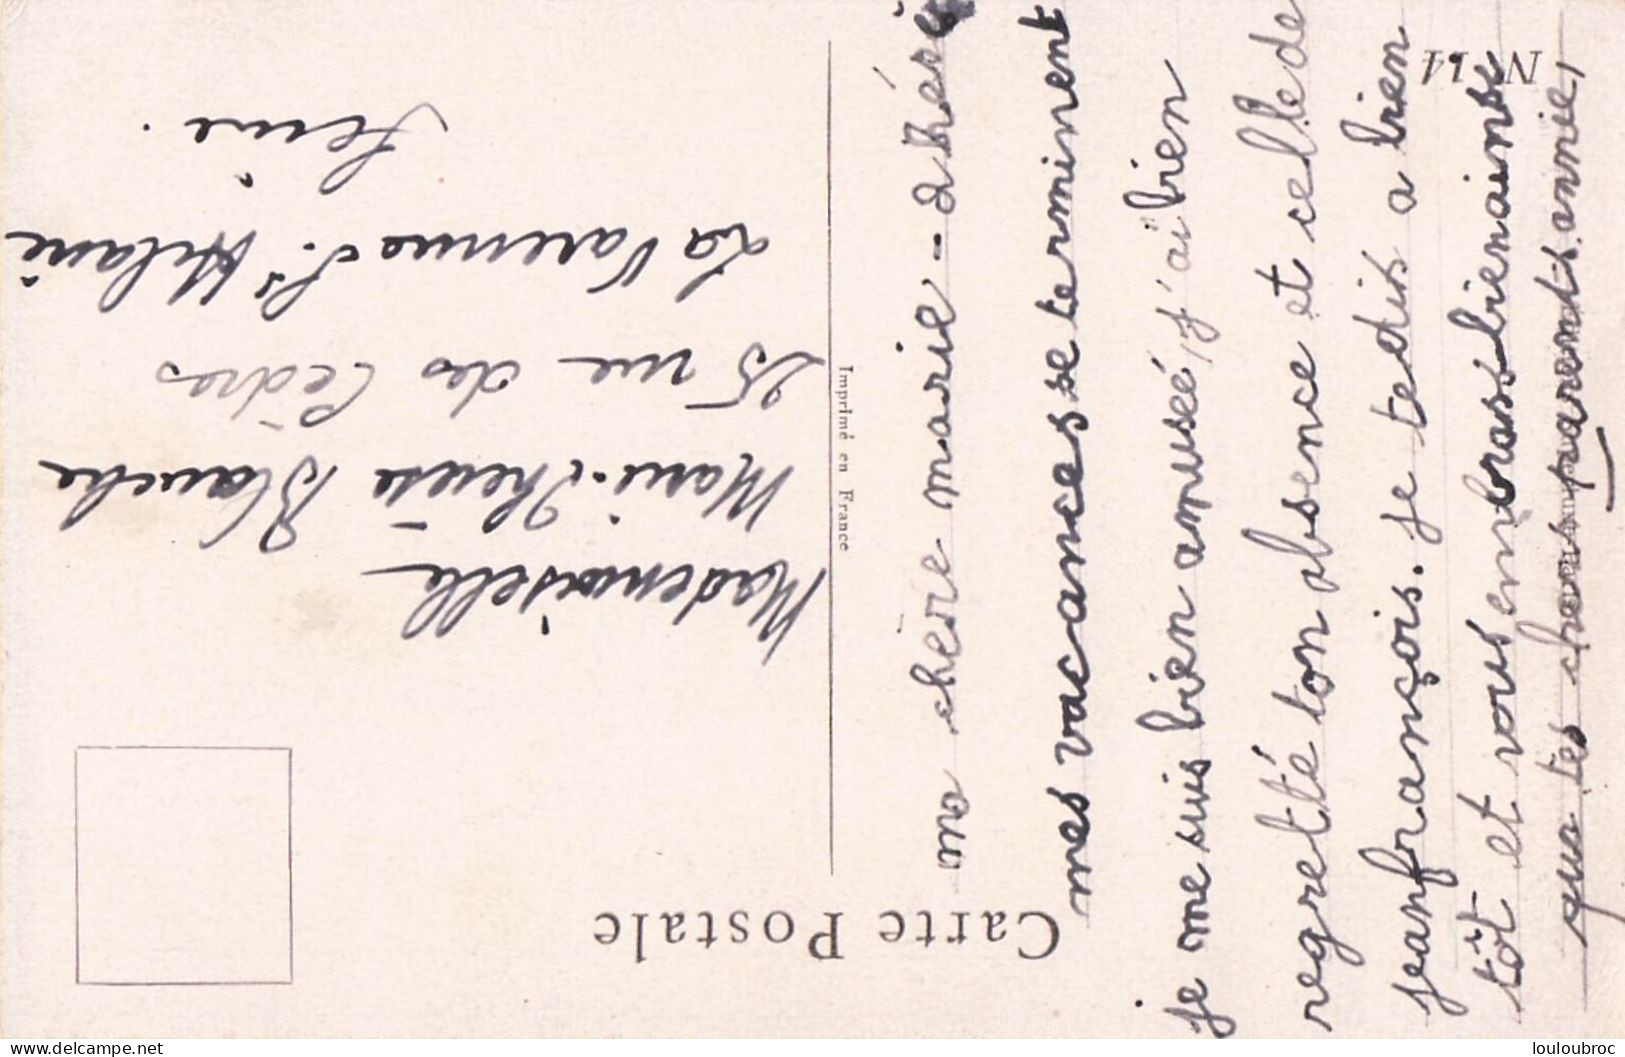 Carte Postale
N. 14
ma chère marie-thérèse
mes vacances se terminent
je me suis bien amusée, j'ai bien
regretté ton absence et celle de
jeanfrançois. je te dis a bien
tôt et vous embrass bien ainse
que tes chers parents annie,
Imprimé en France
Mademoiselle
Marie-Thérèse Blanche
25 rue des Cèdres
La Varenne St Hilaire
Seine.
louloubroc